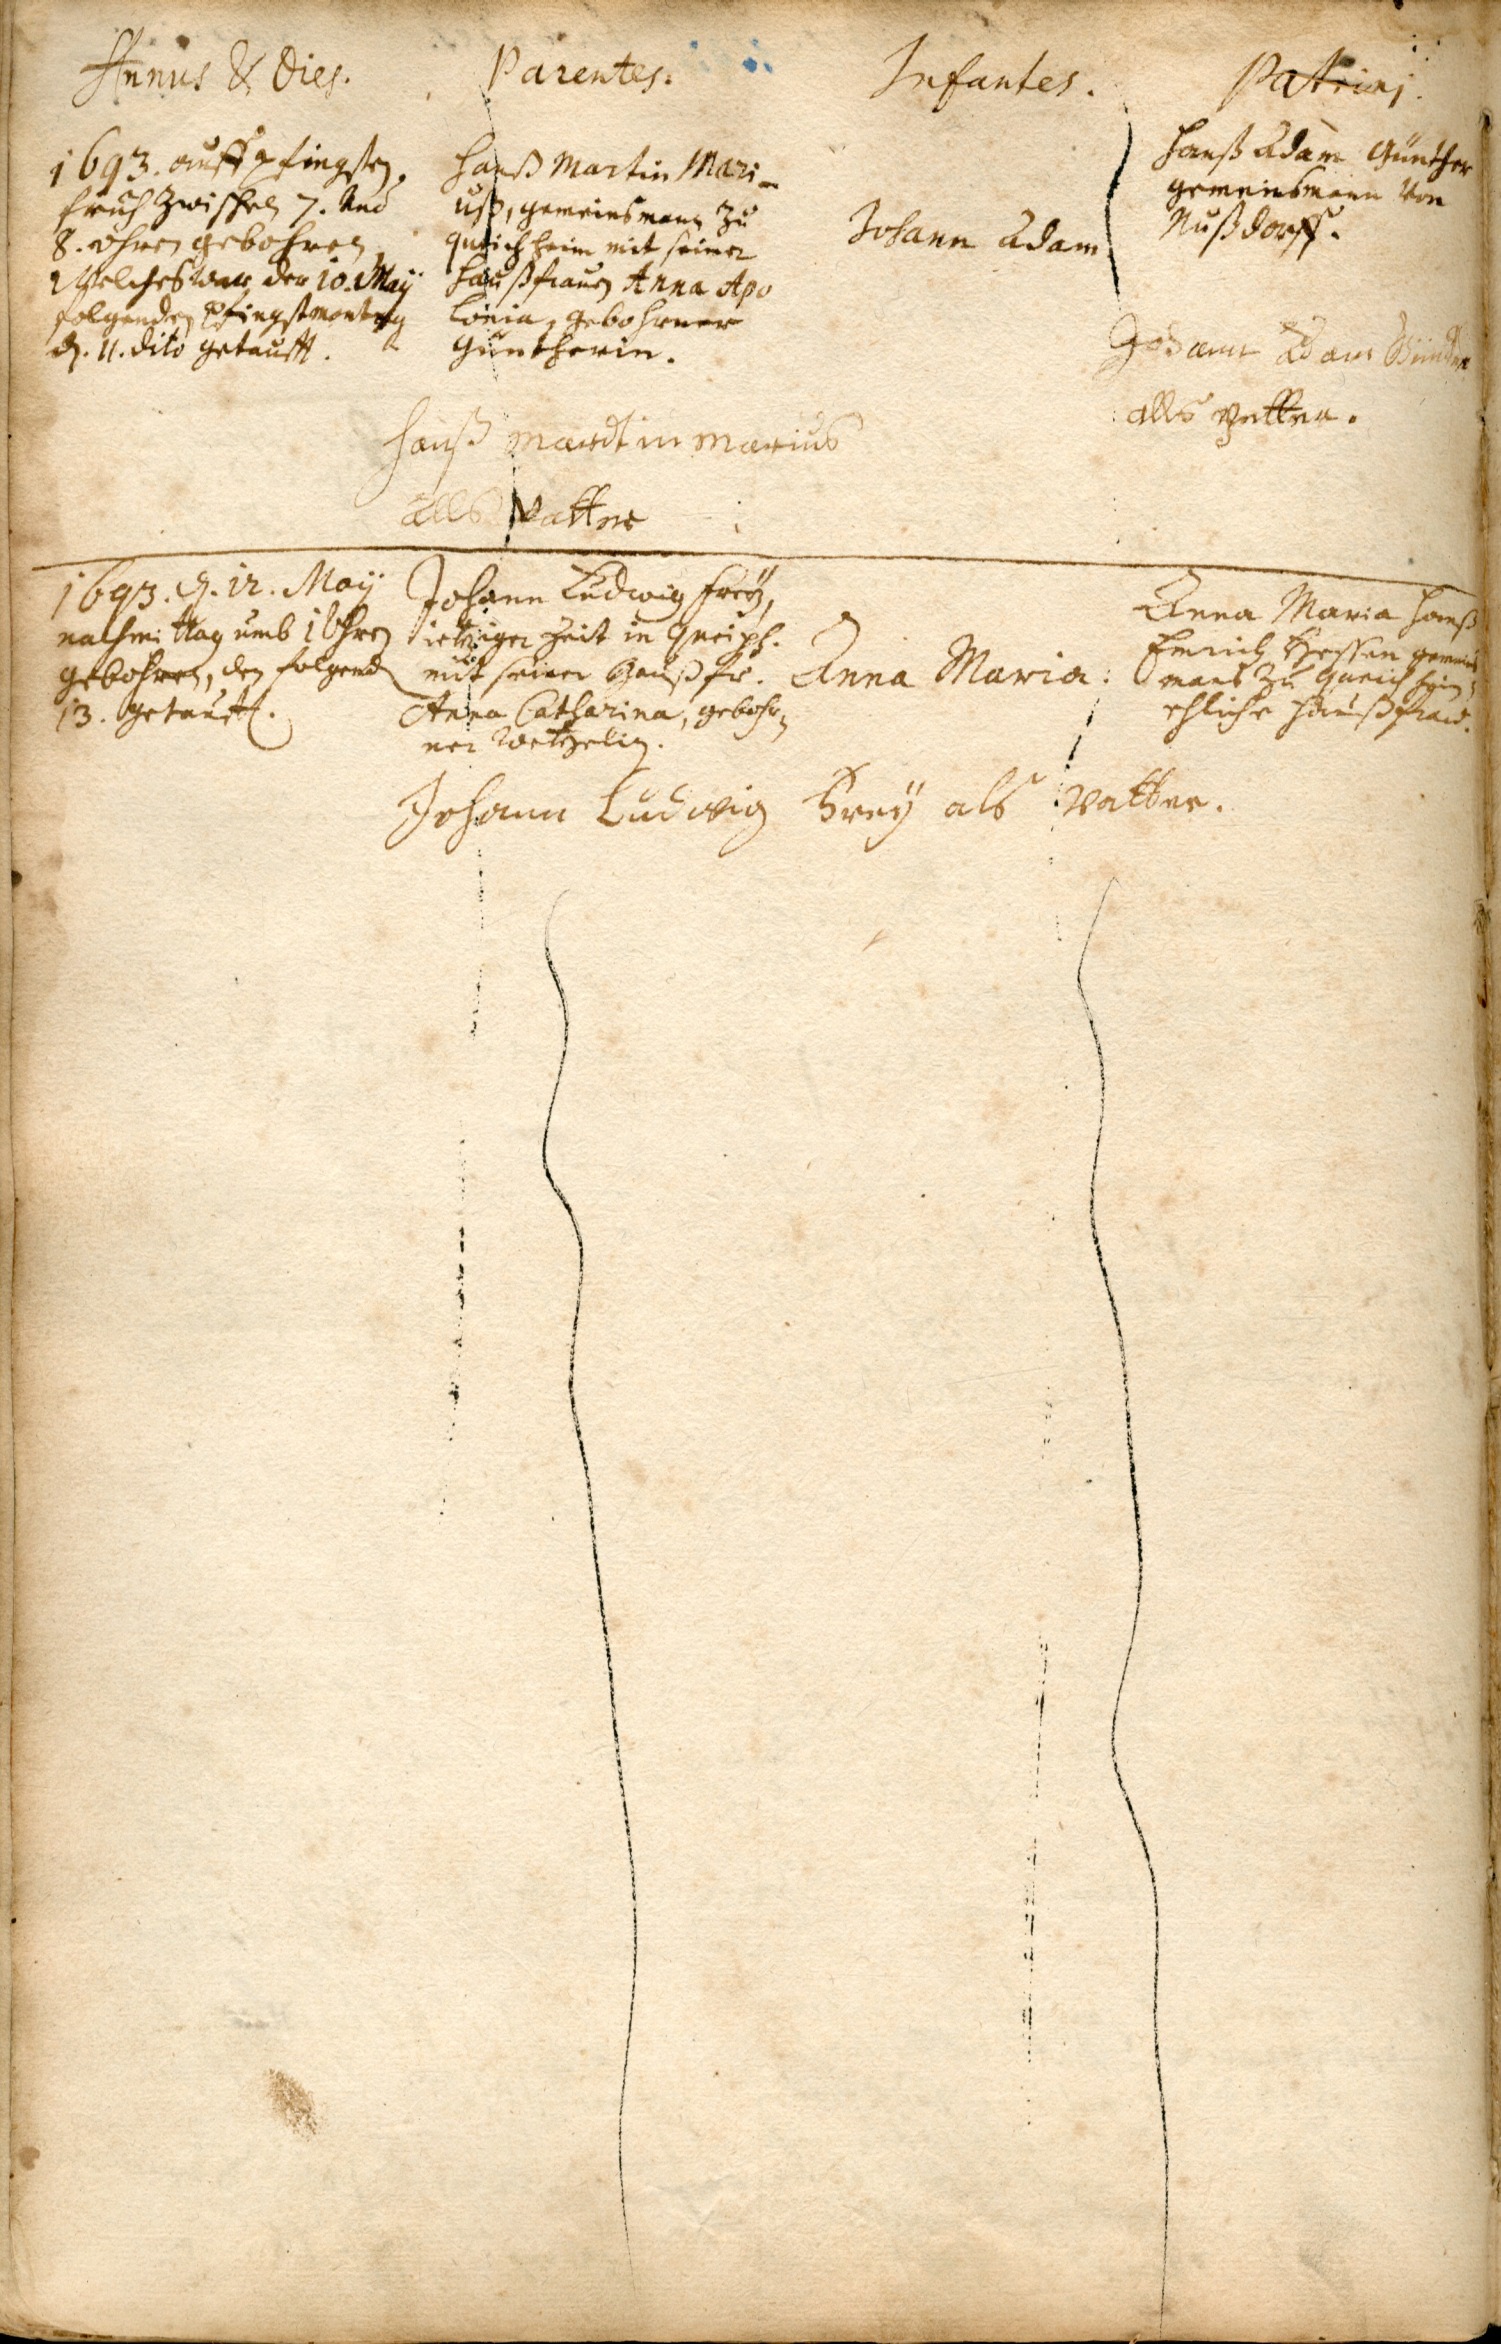 Annus & Dies.
Parentes.
Infantes.
Patrini.
1693. auff Pfingsten,
früh zwischen 7. und
8. uhren gebohren
welches war der 10. May
folgenden Pfingstmontag
d. 11. dito getaufft.
Hanß Martin Mari-
uß, gemeinsmann zu
queichheim mit seiner
Haußfrauen Anna Apo
lonia, gebohrner
Güntherin.
Johann Adam
Hanß Adam Günther
gemeinsmann von
Nußdorff.
Johann Adam Günder
alls Petter.
Hanß Mardtin Marius
alls Vatter
1693. d. 12. May
nachmittag umb 1 Uhren
gebohren, den folgend
13. getaufft.
Johann Ludwig Frey,
ietziger Zeit in Queichh.
mit seiner Haußfr.
Anna Catharina, gebohr
ner Wetzelin.
Anna Maria:
Anna Maria Hanß
Emrich Hessen gemeins
mans zu Queichheim
ehliche Haußfrau.
Johann Ludwig Frey als Vatter.